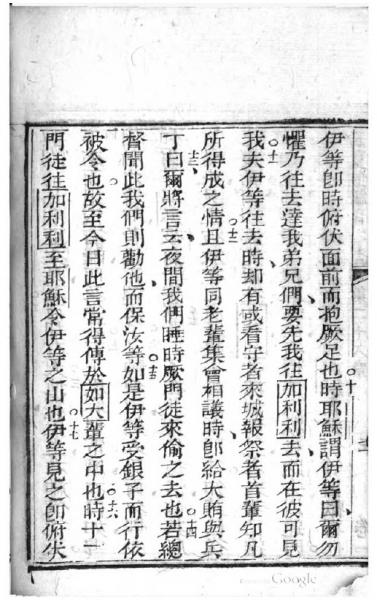 伊等卽時俯伏面前而抱厥足也十時耶穌謂伊等曰爾勿
懼乃往去達我弟兄們要先我往加利利去而在彼可見
我十一夫伊等往去時却有或看守者來城報祭者首輩知凡
所得成之情十二且伊等同老輩集會相議時卽給大賄與兵
丁十三曰爾將言云夜間我們睡時厥門徒來偷之去也十四若總
督聞此我們則勸他而保汝等十五如是伊等受銀子而行依
被令也故至今日此言常得傳於如大輩之中也十六時十一
門徒往加利利至耶穌令伊等之山也十七伊等見之卽俯伏
Google